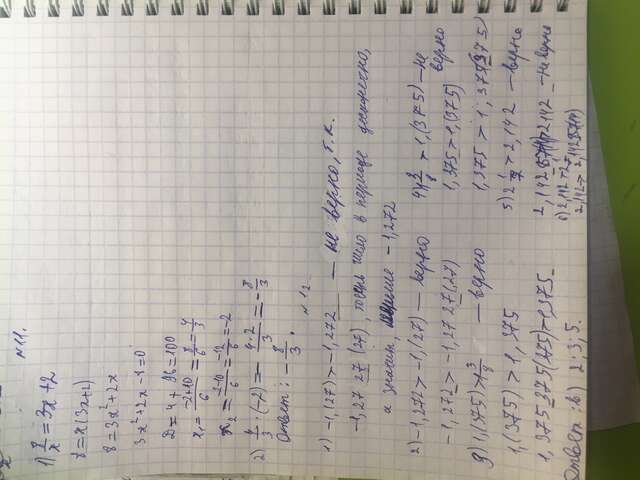 №11.
1) 8/x = 3x+2
8 = x(3x+2)
8 = 3x²+2x
3x²+2x-8=0
D = 4 + 96 = 100
x₁ = (-2+10)/6 = 8/6 = 4/3
x₂ = (-2-10)/6 = -12/6 = -2
2) 4/3 · (-2) = - (4·2)/3 = - 8/3
Ответ: - 8/3.
№12
1) -1,(27) > -1,272 — не верно, т.к.
-1,27 27 (27), число в периоде бесконечно,
а значит, меньше -1,272
2) -1,272 > -1,(27) — верно
-1,272 > -1,27 27(27)
3) 1,(375) > 1 3/8 — верно
1,(375) > 1,375
1,375 375(375) > 1,375
4) 1 3/8 > 1,(375) — не верно
1,375 > 1,(375)
1,375 > 1,375(375)
5) 2 1/7 > 2,142 — верно
2,142 > 2,142 — не верно
6) 2,142 > 2 1/7
2,142 > 2,142857(14)
Ответ: в) 2; 3; 5.